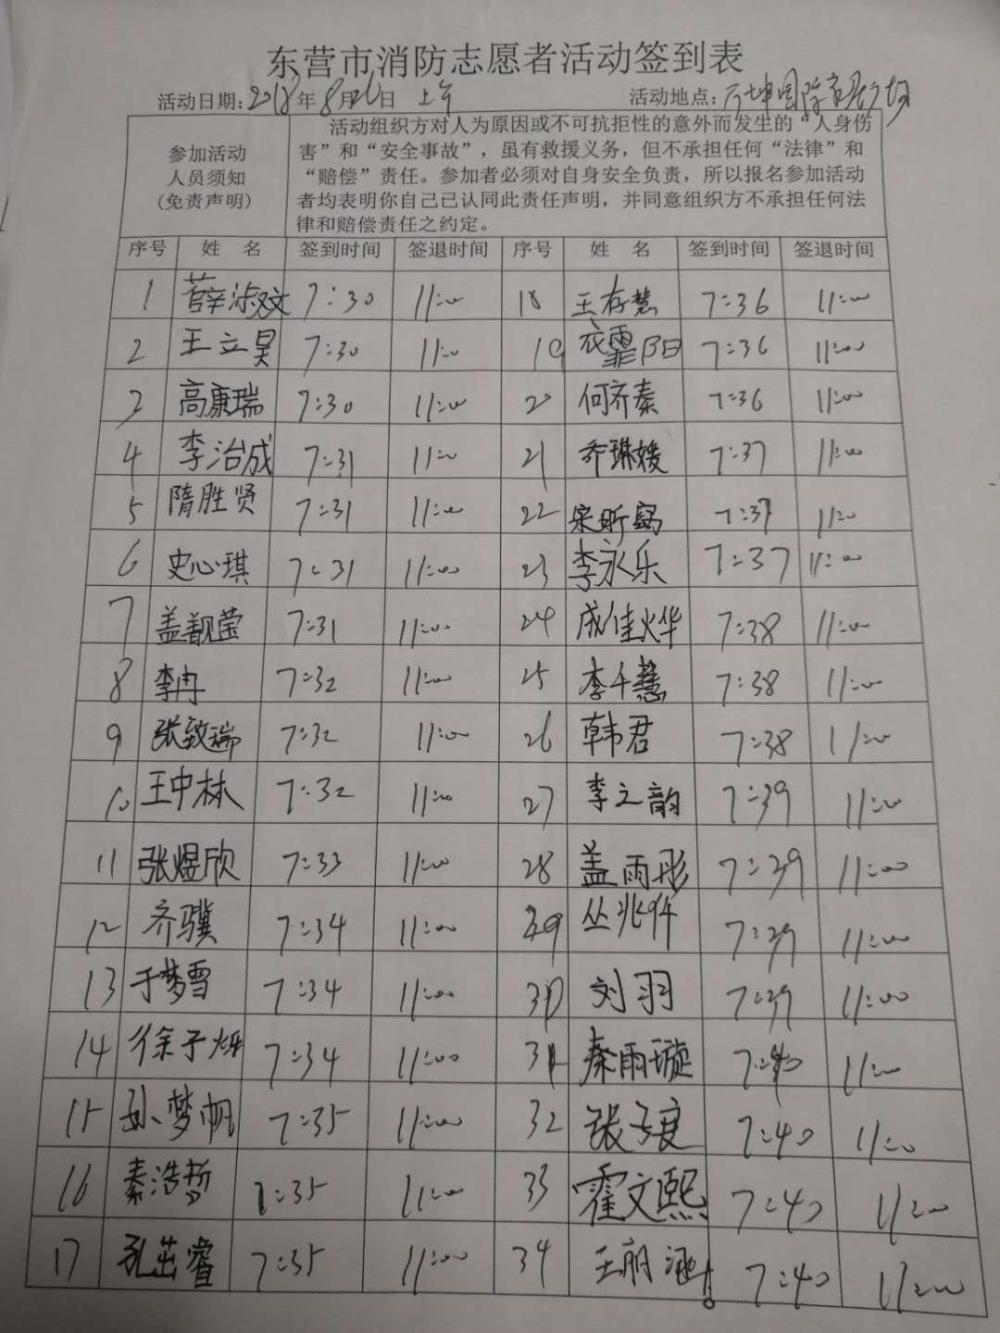 东营市消防志愿者活动签到表
活动日期:2018年8月26日 上午 活动地点:万坤国际家居广场
参加活动
人员须知
(免责声明)
活动组织方对人为原因或不可抗拒性的意外而发生的“人身伤
害”和“安全事故”，虽有救援义务，但不承担任何“法律”和
“赔偿”责任。参加者必须对自身安全负责，所以报名参加活动
者均表明你自己已认同此责任声明，并同意组织方不承担任何法
律和赔偿责任之约定。
序号 姓 名 签到时间 签退时间 序号 姓 名 签到时间 签退时间
1 薛淑文 7:30 11:00 18 王存慧 7:36 11:00
2 王立昊 7:30 11:00 19 衣霏阳 7:36 11:00
3 高康瑞 7:30 11:00 20 何齐秦 7:36 11:00
4 李治成 7:31 11:00 21 乔琳媛 7:37 11:00
5 隋胜贤 7:31 11:00 22 宋昕窈 7:37 11:00
6 史心琪 7:31 11:00 23 李永乐 7:37 11:00
7 盖靓莹 7:31 11:00 24 成佳烨 7:38 11:00
8 李冉 7:32 11:00 25 李千慧 7:38 11:00
9 张致瑞 7:32 11:00 26 韩君 7:38 11:00
10 王中林 7:32 11:00 27 李之韵 7:39 11:00
11 张煜欣 7:33 11:00 28 盖雨彤 7:39 11:00
12 齐骥 7:34 11:00 29 丛兆 7:39 11:00
13 于梦雪 7:34 11:00 30 刘羽 7:39 11:00
14 徐子烁 7:34 11:00 31 秦雨璇 7:40 11:00
15 孙梦帆 7:35 11:00 32 张 7:40 11:00
16 秦浩哲 7:35 11:00 33 霍文熙 7:40 11:00
17 孔茁睿 7:35 11:00 34 王丽涵 7:40 11:00